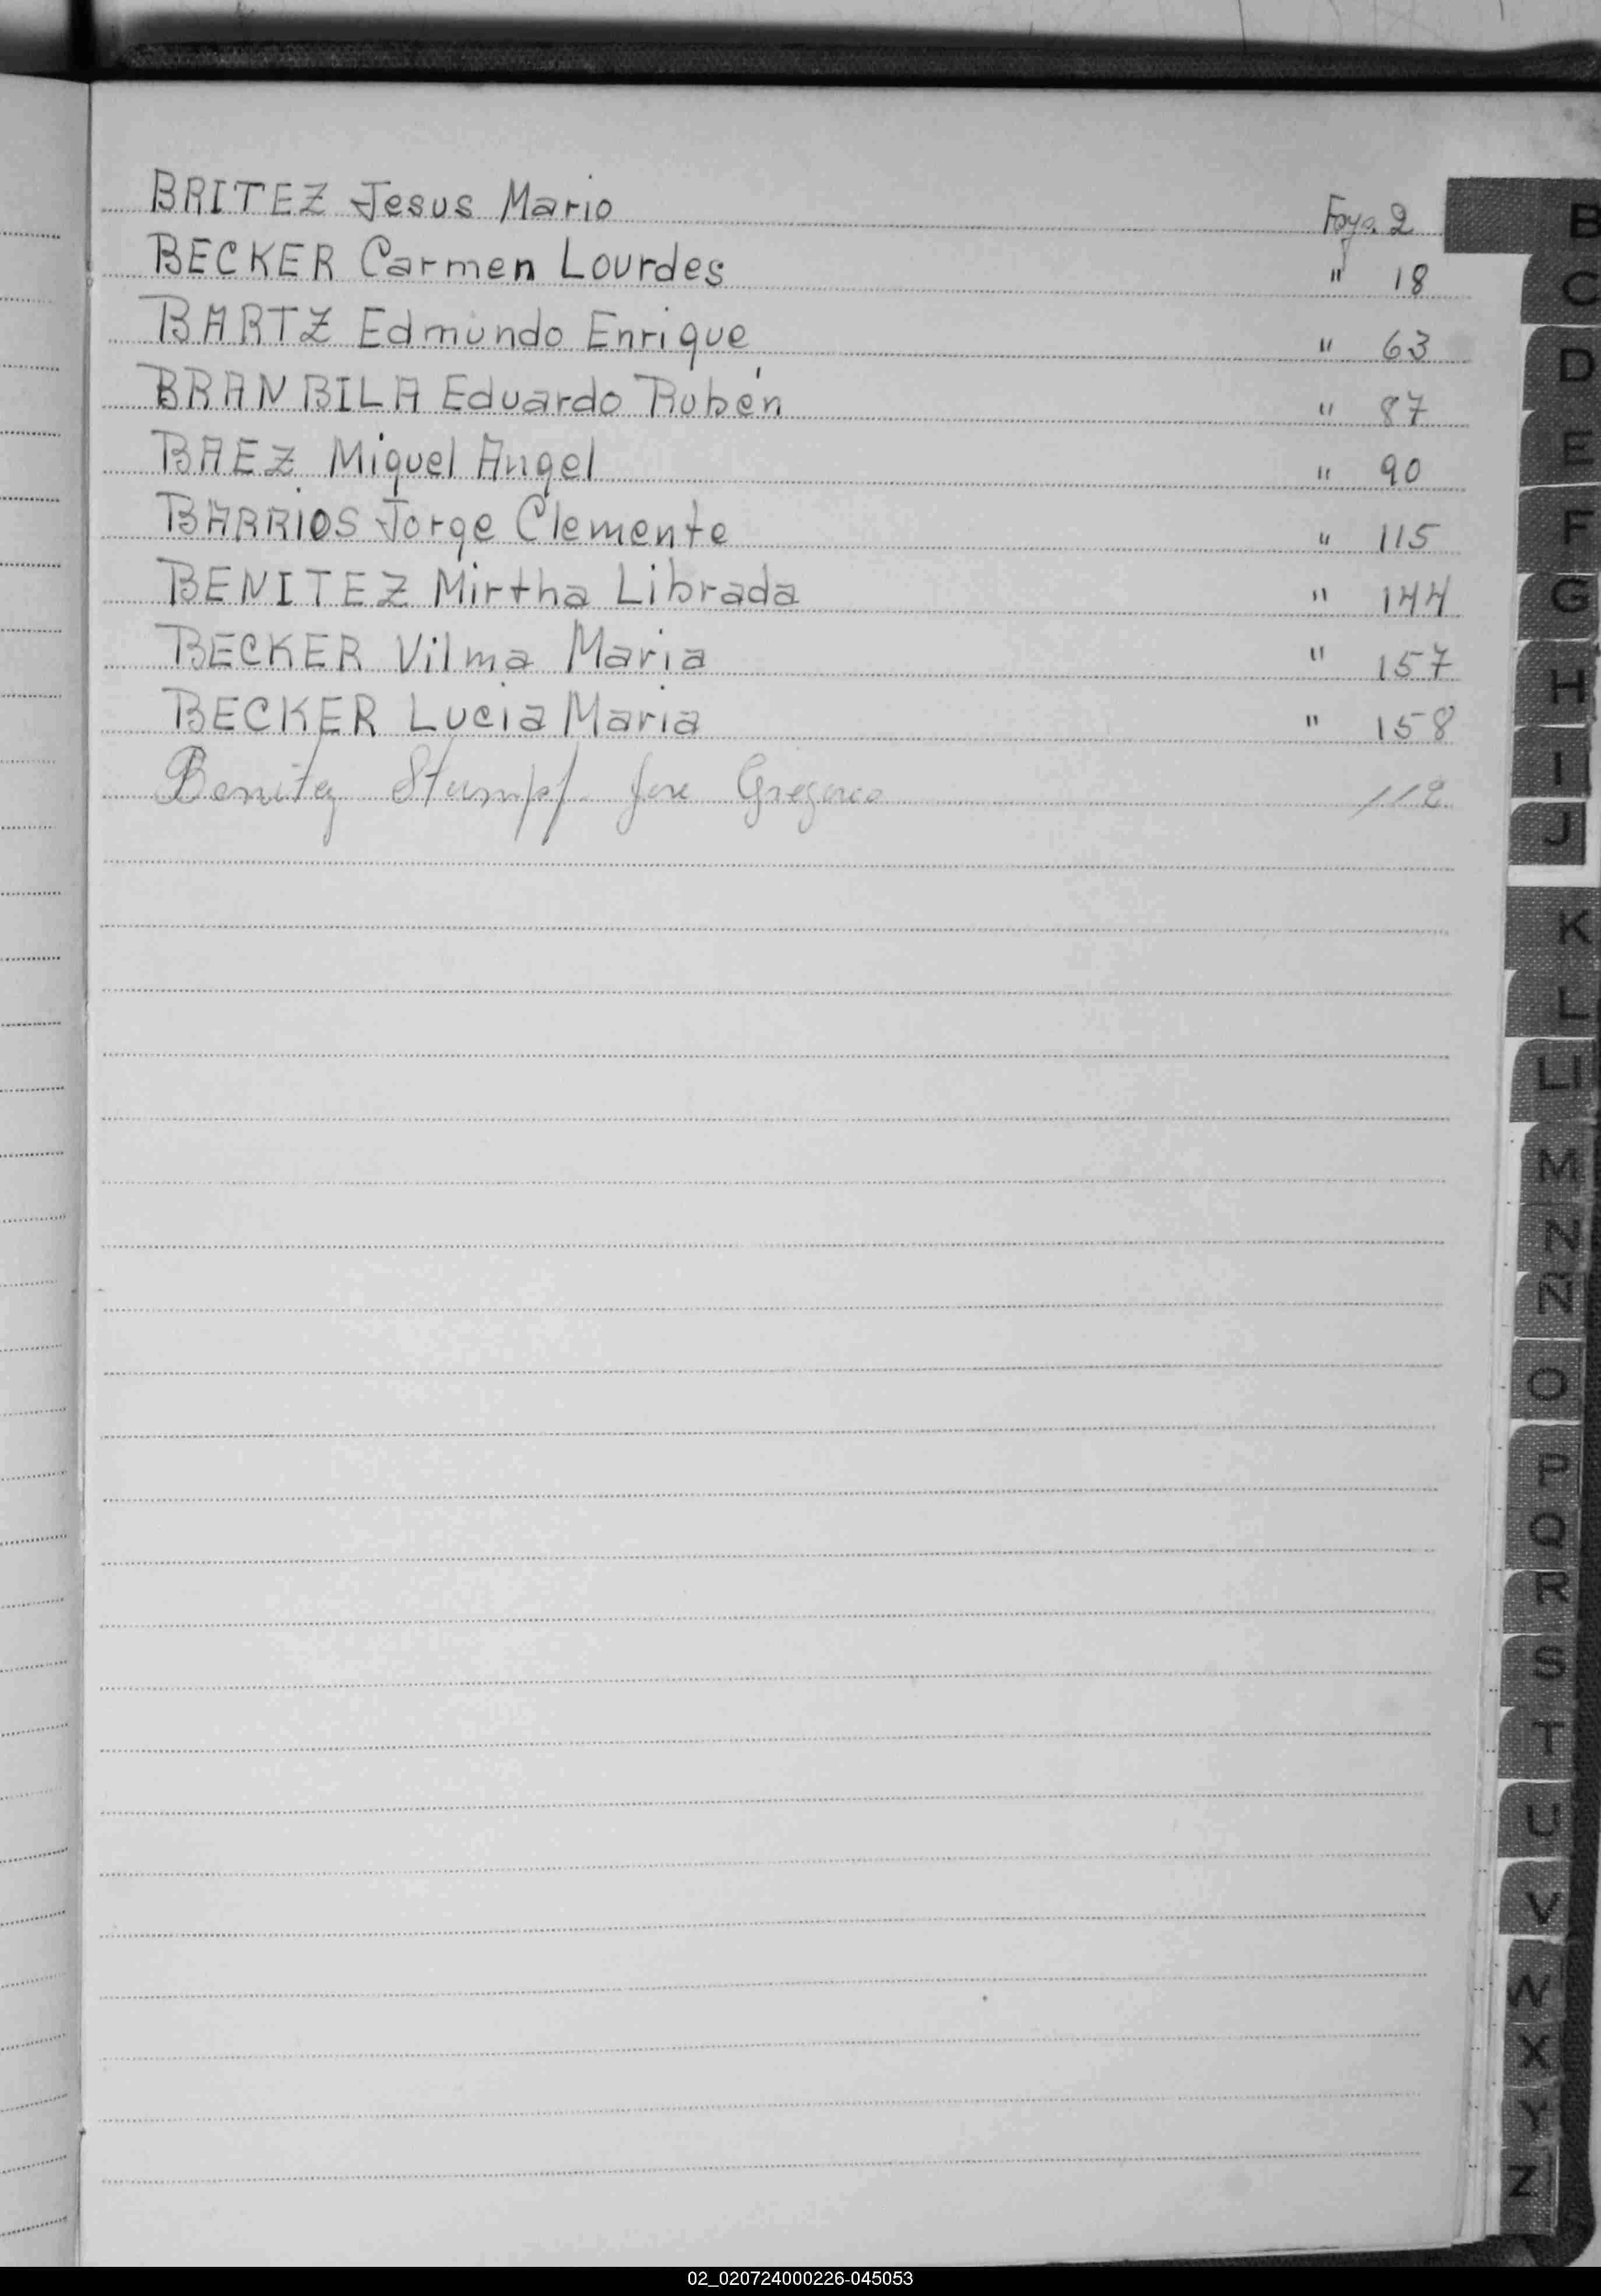 BRITEZ Jesus Mario Foyo. 2
BECKER Carmen Lourdes " 18
BARTZ Edmundo Enrique " 63
BRANBILA Eduardo Rubén " 87
BAEZ Miguel Angel " 90
BARRIOS Jorge Clemente " 115
BENITEZ Mirtha Librada " 144
BECKER Vilma Maria " 157
BECKER Lucia Maria " 158
Benitez Stumpf Jose Gregorio 112
B
C
D
E
F
G
H
I
J
K
L
Ll
M
N
Ñ
O
P
Q
R
S
T
U
V
W
X
Y
Z
02_020724000226-045053